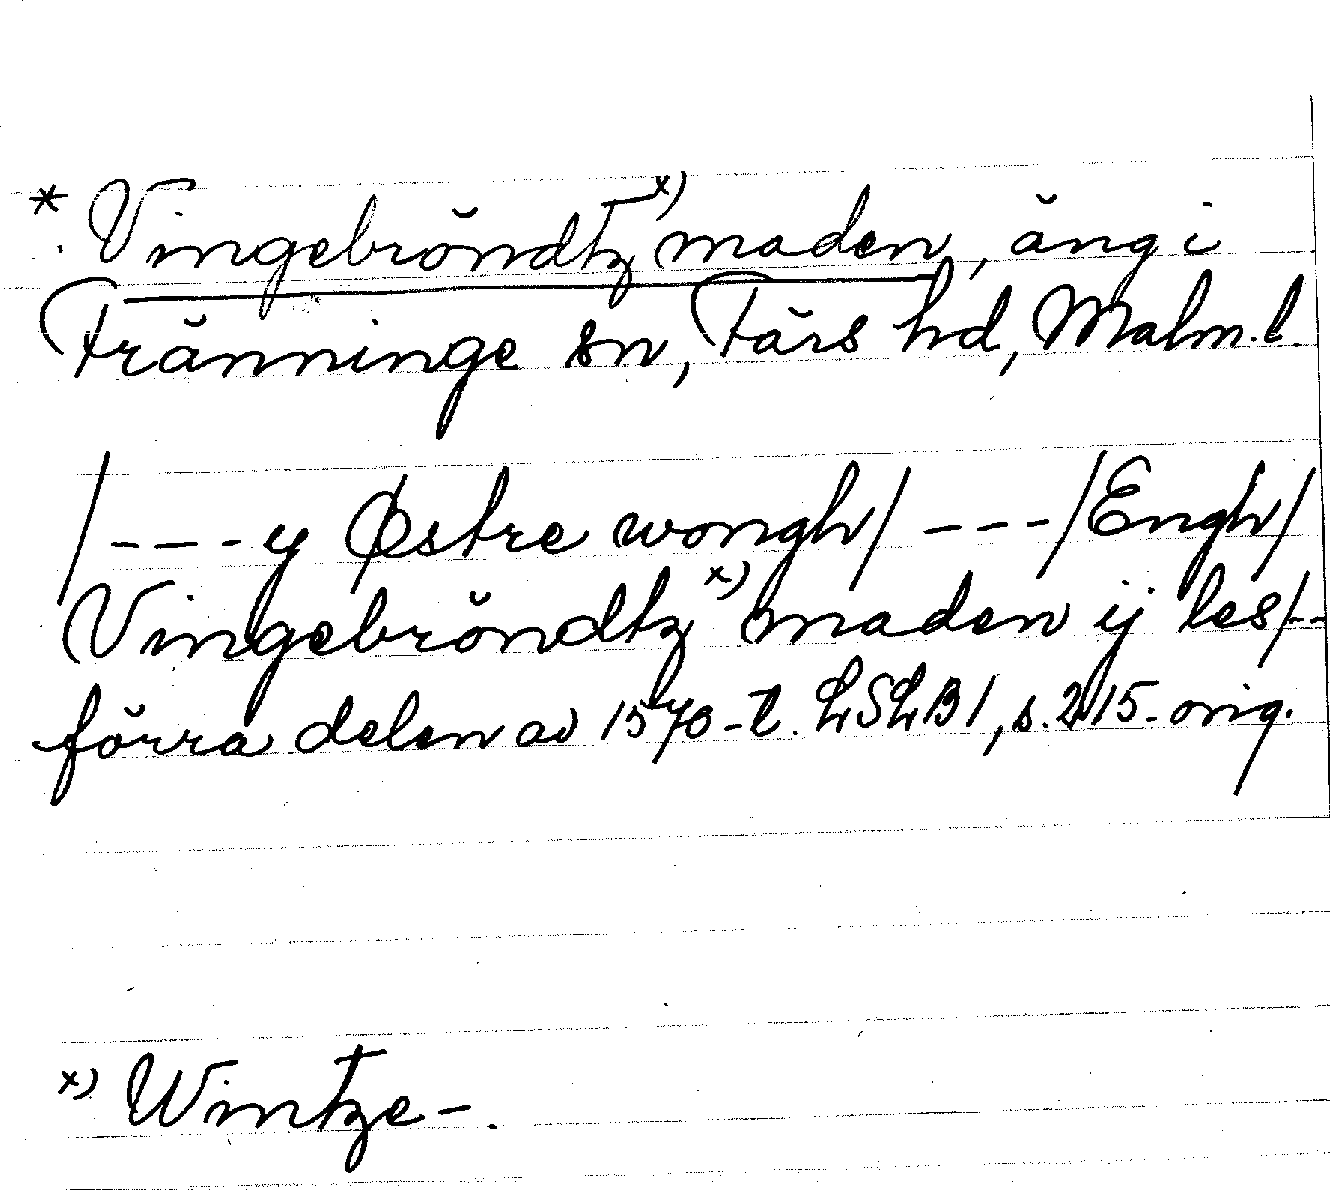 * Vingebröndtz x) maden, äng i
Tränninge sn, Färs hd, Malm. l.
/---y Østre wongh/ ---/Engh/
Vingebröndtz x) maden ij les/--
förra delen av 1570-t. LSLB 1, s. 215. orig.
x) Wintze-.